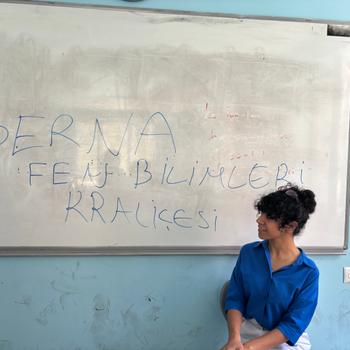 DERNA
FEN BİLİMLERİ
KRALİÇESİ